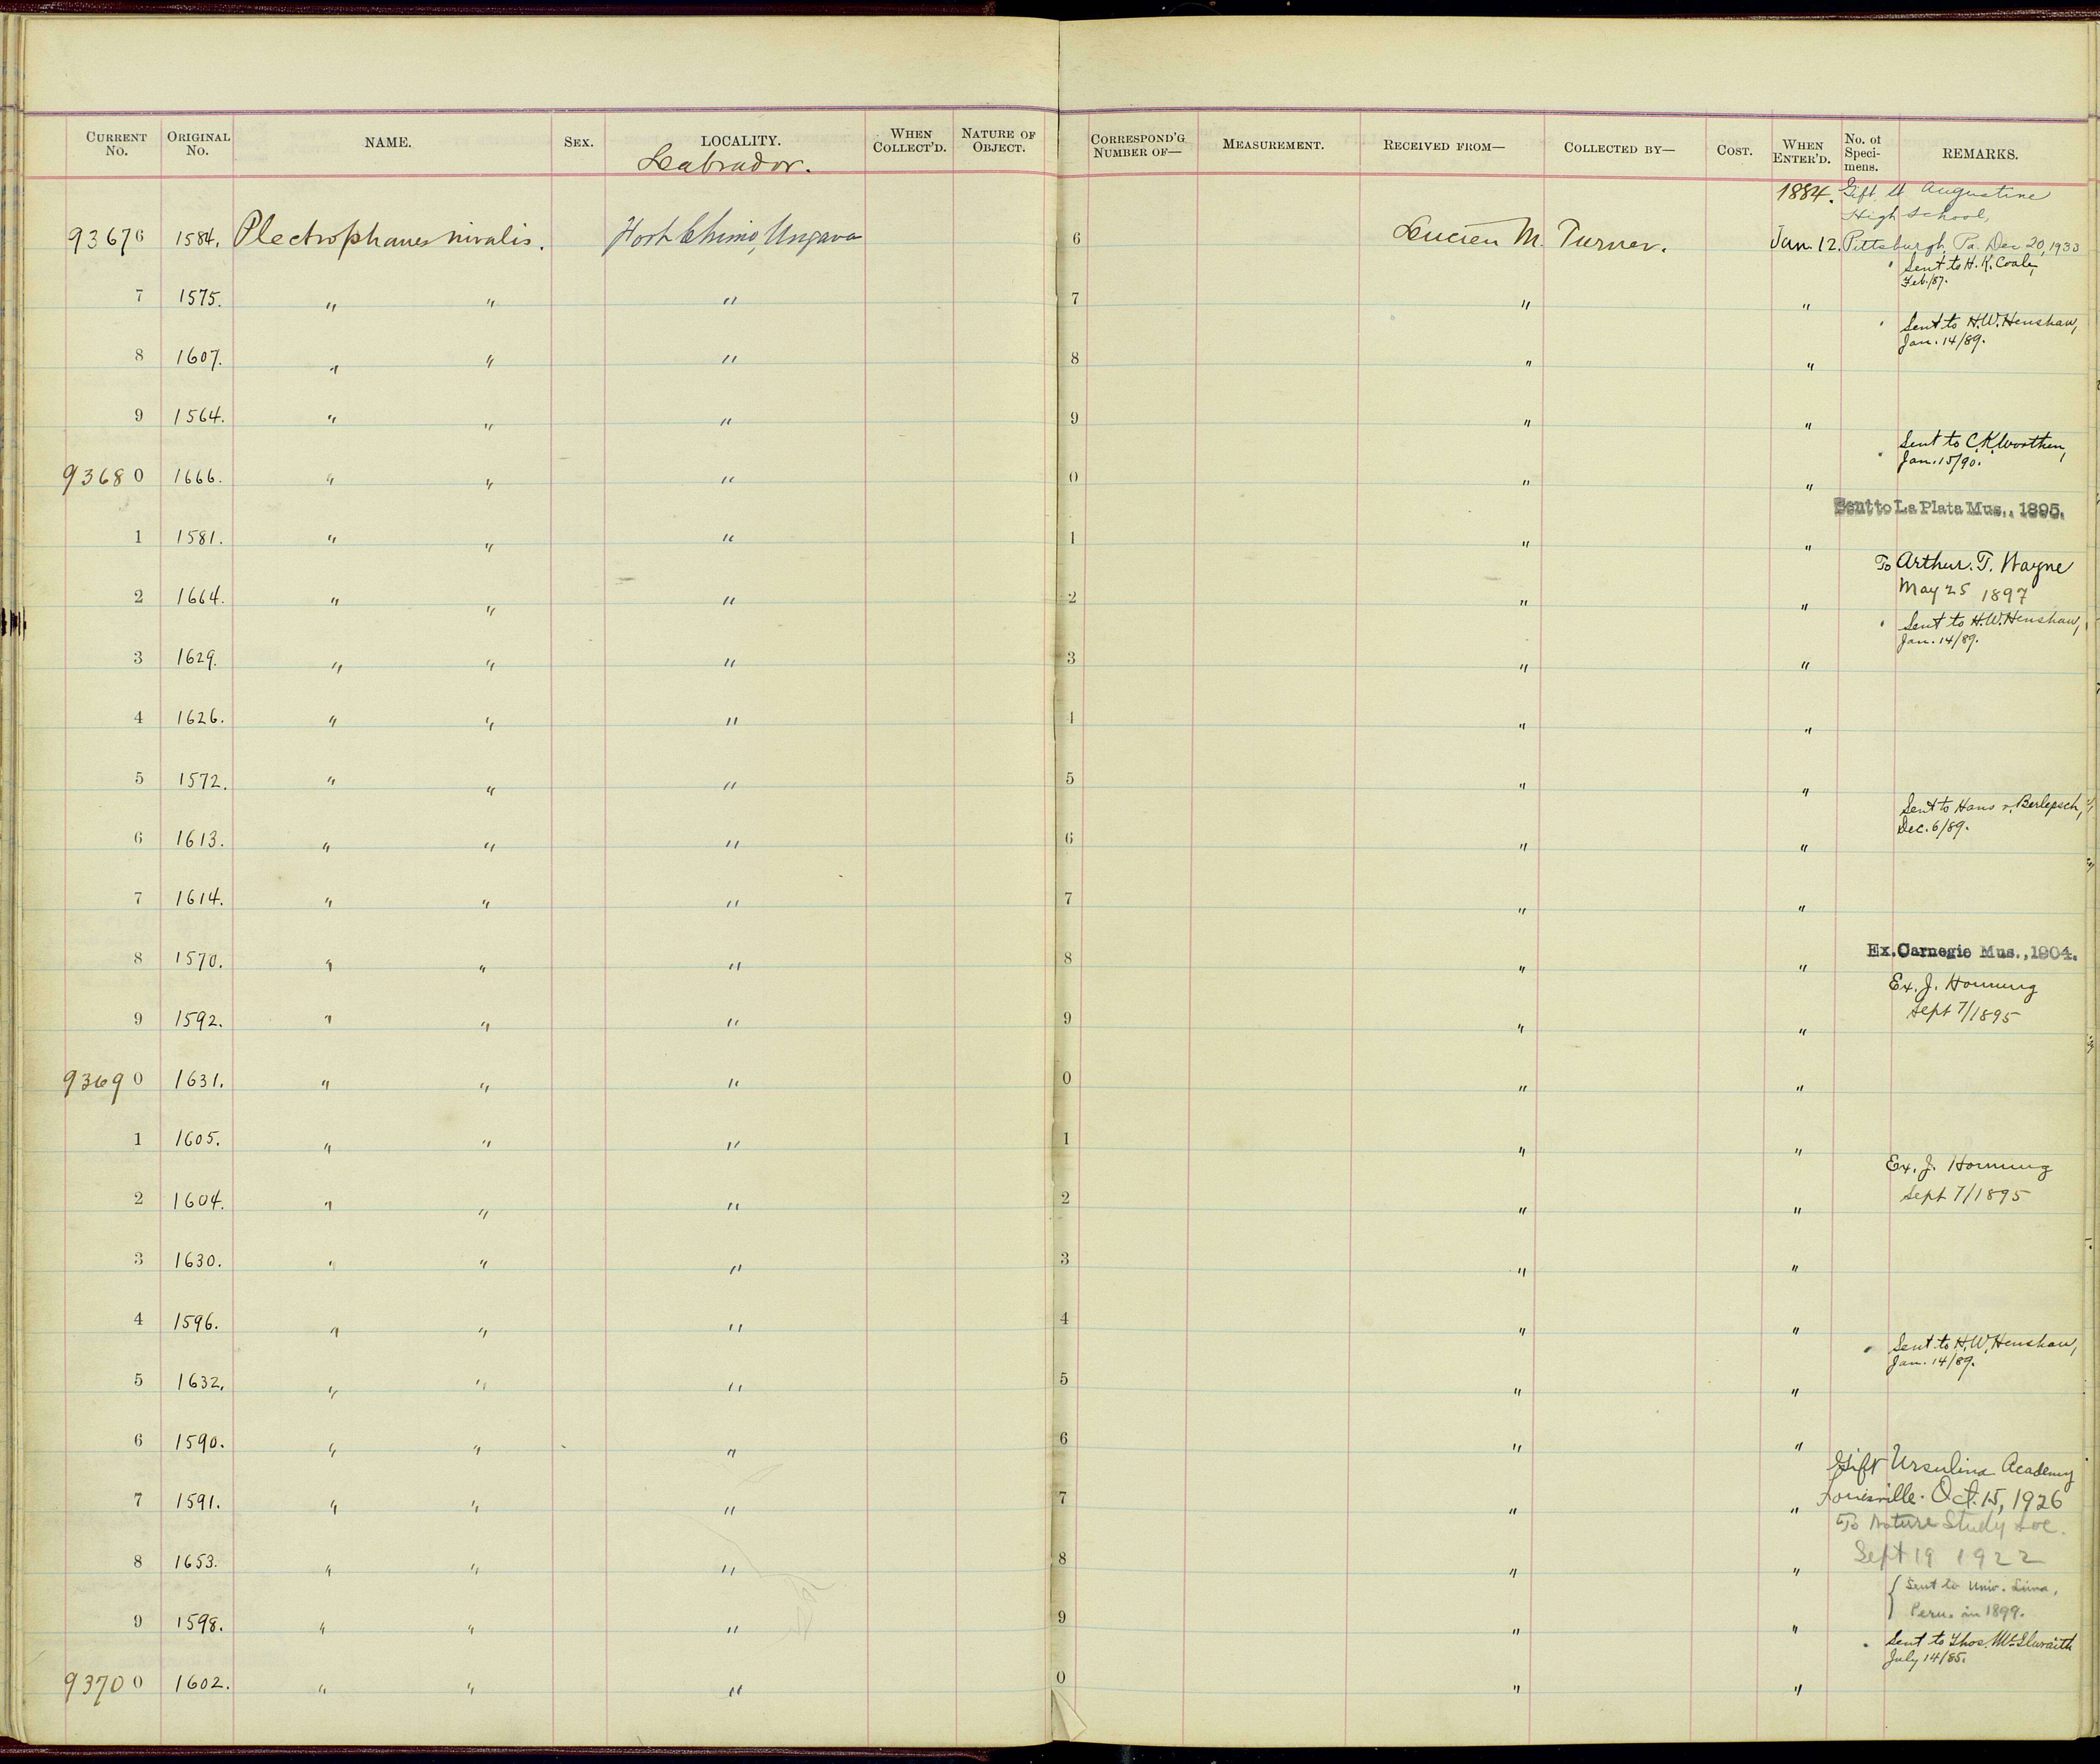 CURRENT No. ORIGINAL No. NAME. SEX. LOCALITY. WHEN COLLECT'D. NATURE OF OBJECT. CORRESPOND'G NUMBER OF— MEASUREMENT. RECEIVED FROM— COLLECTED BY— COST. WHEN ENTER'D. No. of Specimens. REMARKS.
Labrador.
1884. Gift St Augustine
High School,
93676 1584. Plectrophanes nivalis. Fort Chimo, Ungava 6 Lucien M. Turner. Jan. 12. Pittsburgh, Pa. Dec 20, 1933
Sent to H. K. Coale,
Feb./87.
7 1575. " " " 7 " "
Sent to H.W. Henshaw,
Jan. 14/89.
8 1607. " " " 8 " "
9 1564. " " " 9 " "
Sent to C.K. Worthen,
Jan. 15/90.
93680 1666. " " " 0 " "
Sent to La Plata Mus., 1895.
1 1581. " " " 1 " "
To Arthur. T. Wayne
May 25 1897
2 1664. " " " 2 " "
Sent to H.W. Henshaw,
Jan. 14/89.
3 1629. " " " 3 " "
4 1626. " " " 4 " "
5 1572. " " " 5 " "
Sent to Hans v. Berlepsch,
Dec. 6/89.
6 1613. " " " 6 " "
7 1614. " " " 7 " "
Ex. Carnegie Mus., 1904.
8 1570. " " " 8 " "
Ex. J. Hornung
Sept 7/1895
9 1592. " " " 9 " "
93690 1631. " " " 0 " "
1 1605. " " " 1 " "
Ex. J. Hornung
Sept 7/1895
2 1604. " " " 2 " "
3 1630. " " " 3 " "
4 1596. " " " 4 " "
Sent to H.W. Henshaw,
Jan. 14/89.
5 1632. " " " 5 " "
6 1590. " " " 6 " "
Gift Ursuline Academy
Louisville. Oct. 15, 1926
7 1591. " " " 7 " "
To Nature Study Soc.
Sept 19 1922
8 1653. " " " 8 " "
Sent to Univ. Lima,
Peru. in 1899.
9 1598. " " " 9 " "
Sent to Thos. McIlwraith
July 14/85.
93700 1602. " " " 0 " "